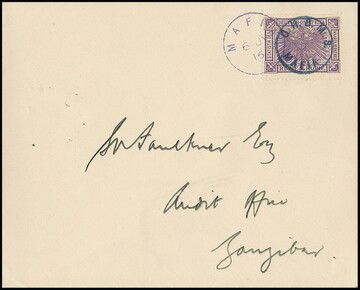 MAFIA
O.H.B.M.S.
MAFIA
Faulkner Esq
Audit Office
Zanzibar.